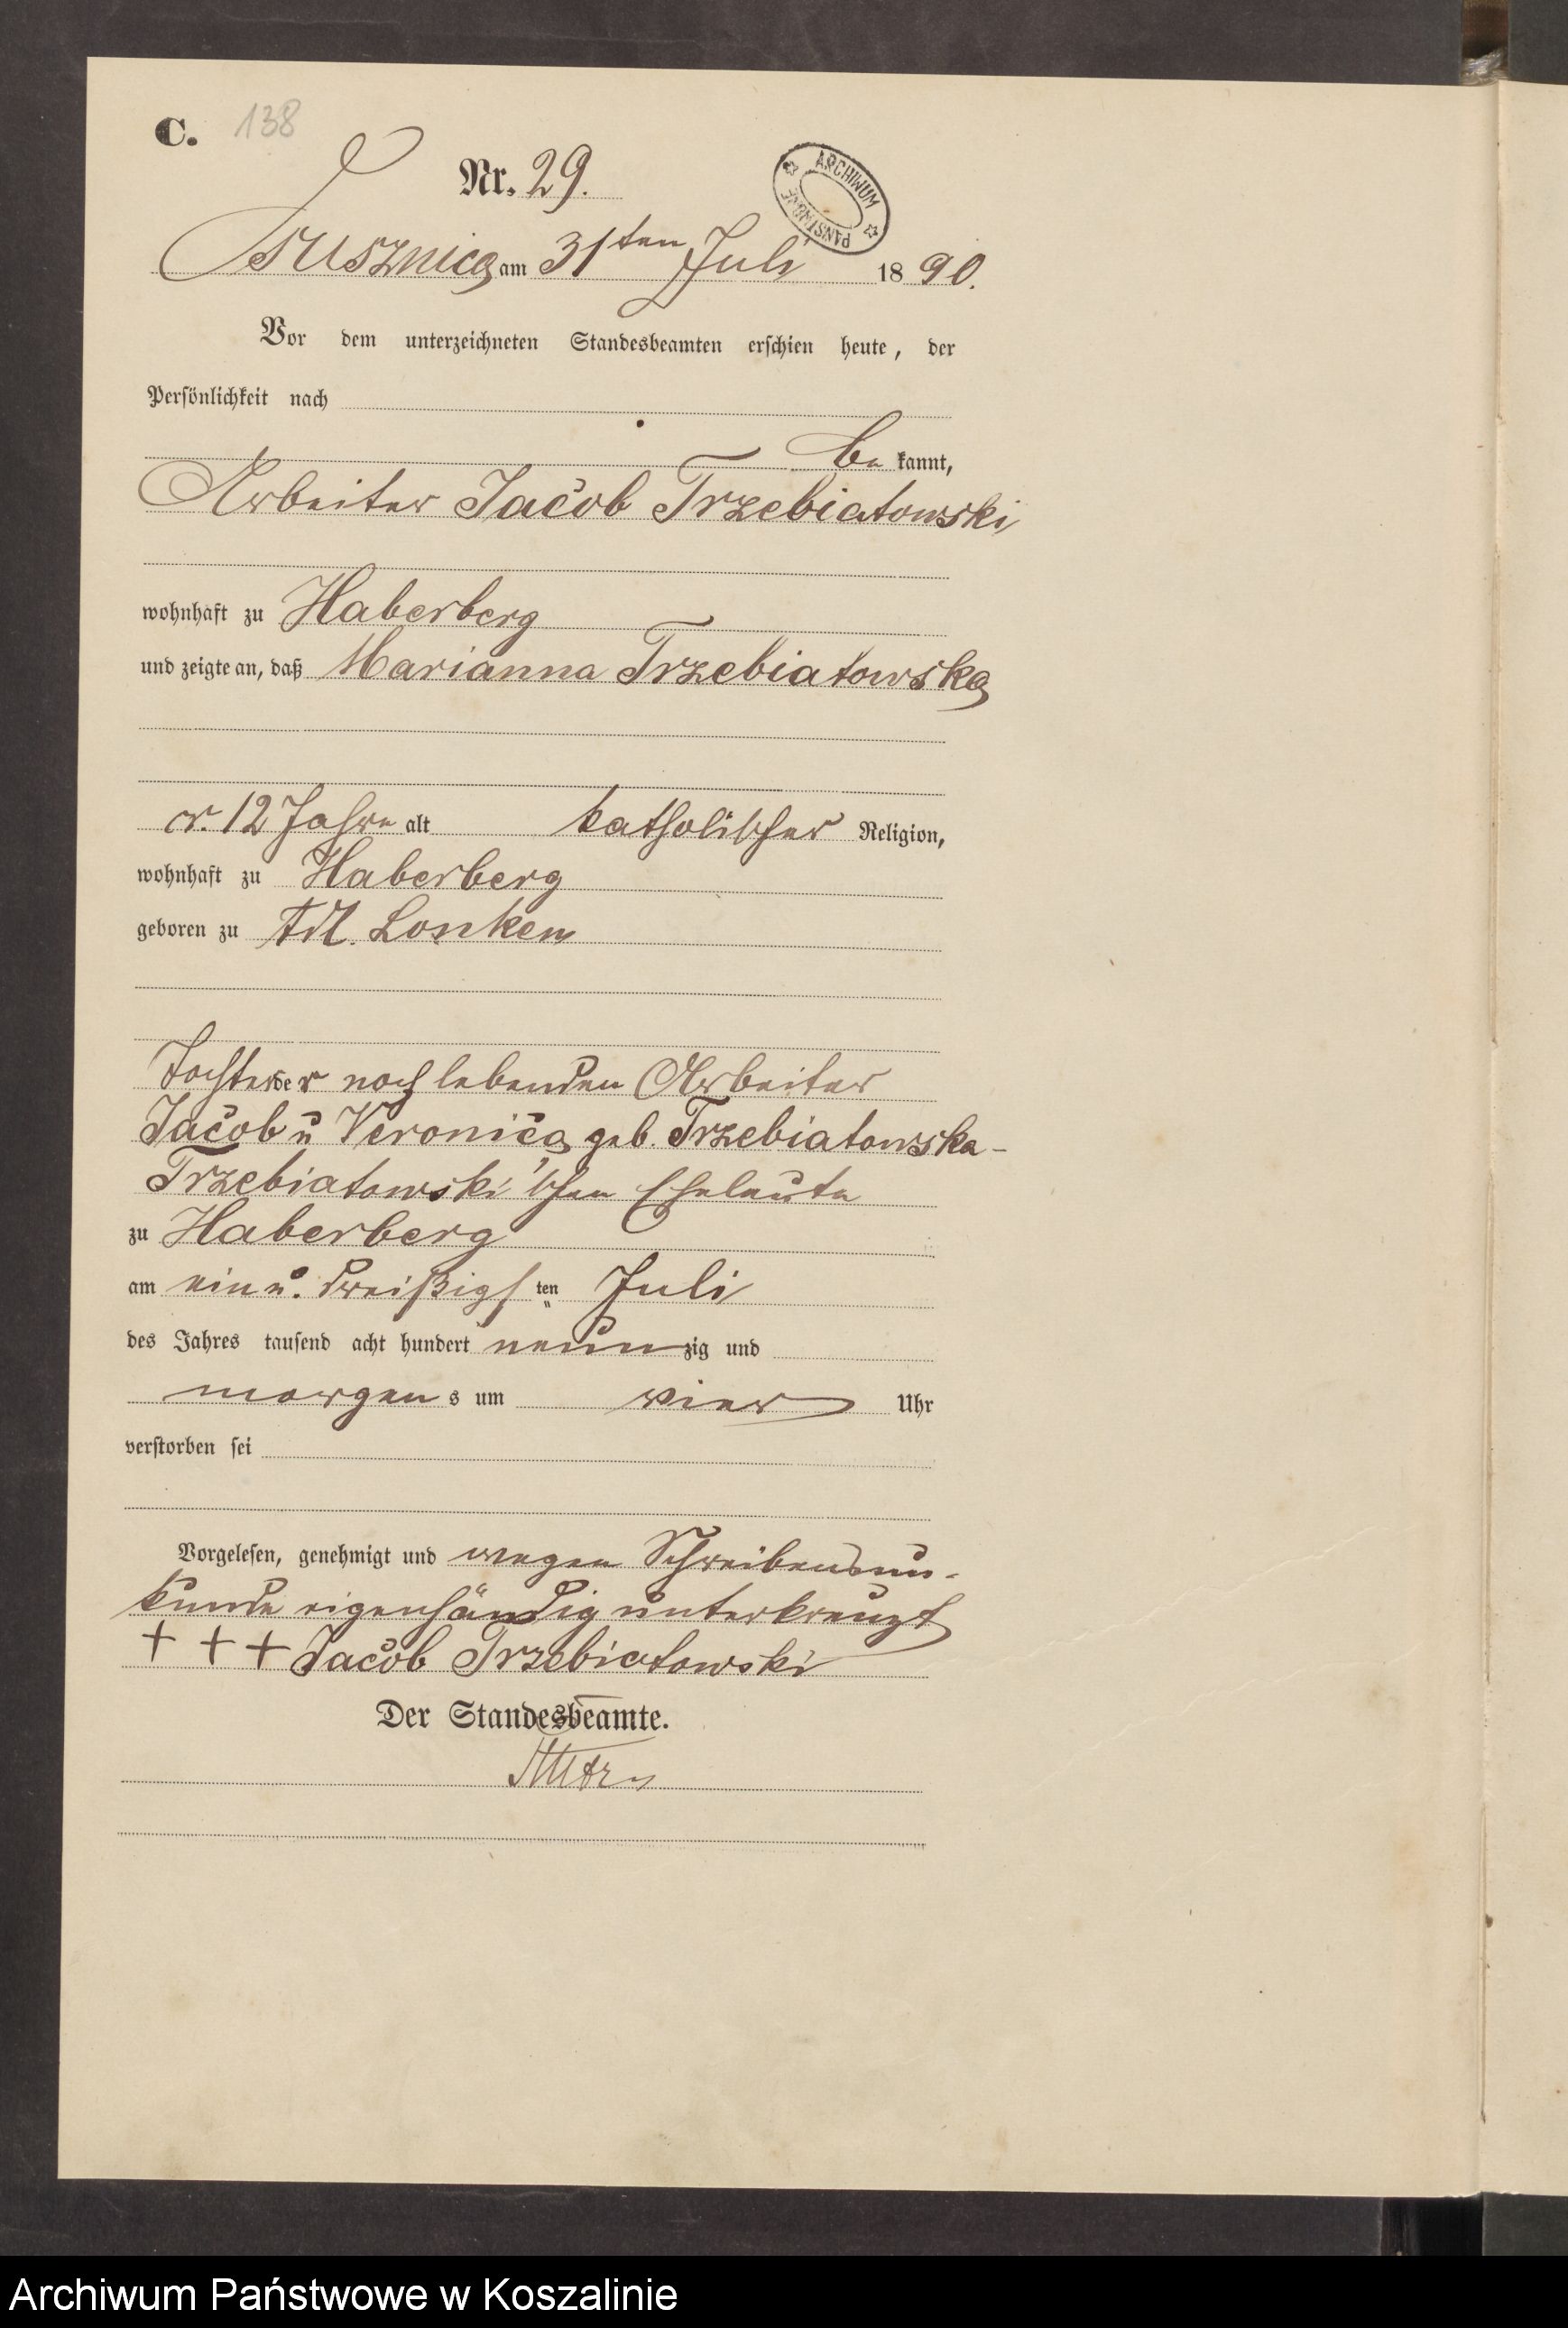 C. 138
Nr. 29.
ARCHIWUM PAŃSTWOWE
am 31ten Juli 1890.
Vor dem unterzeichneten Standesbeamten erschien heute, der
Persönlichkeit nach
be kannt,
Arbeiter Jacob Trzebiatowski
wohnhaft zu Haberberg
und zeigte an, daß Marianna Trzebiatowska
12 Jahre alt katholischer Religion,
wohnhaft zu Haberberg
geboren zu Adl. Lonken
Tochter der noch lebenden Arbeiter
Jacob u Veronica geb. Trzebiatowska-
Trzebiatowski'schen Eheleute
zu Haberberg
am ein u. dreißigsten Juli
des Jahres tausend acht hundert neunzig und
morgens um vier Uhr
verstorben sei
Vorgelesen, genehmigt und wegen Schreibensun-
kunde eigenhändig unterkreuzt
+ + + Jacob Trzebiatowski
Der Standesbeamte.
Archiwum Państwowe w Koszalinie